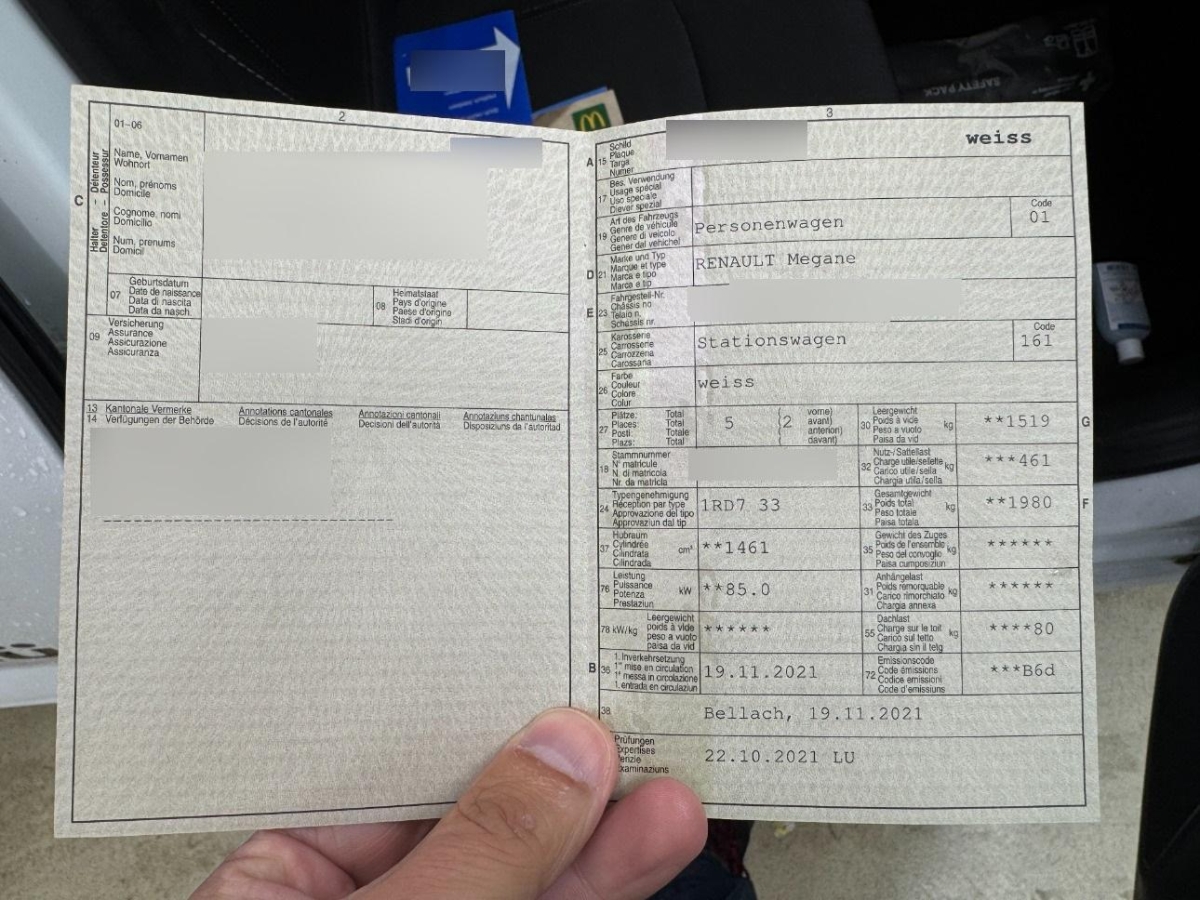 SAFETY PACK
2
01-06
C
Halter - Détenteur
Detentore - Possessur
Name, Vornamen
Wohnort
Nom, prénoms
Domicile
Cognome, nomi
Domicilio
Num, prenums
Domicil
07
Geburtsdatum
Date de naissance
Data di nascita
Data da nasch.
08
Heimatstaat
Pays d'origine
Paese d'origine
Stadi d'origin
09
Versicherung
Assurance
Assicurazione
Assicuranza
13 Kantonale Vermerke Annotations cantonales Annotazioni cantonali Annotaziuns chantunalas
14 Verfügungen der Behörde Décisions de l'autorité Decisioni dell'autorità Disposiziuns da l'autoritad
3
A 15
Schild
Plaque
Targa
Numer
weiss
17
Bes. Verwendung
Usage spécial
Uso speciale
Diever spezial
19
Art des Fahrzeugs
Genre de véhicule
Genere di veicolo
Gener dal vehichel
Personenwagen
Code
01
D 21
Marke und Typ
Marque et type
Marca e tipo
Marca e tip
RENAULT Megane
E 23
Fahrgestell-Nr.
Châssis no
Telaio n.
Schassis nr.
25
Karosserie
Carrosserie
Carrozzeria
Carossaria
Stationswagen
Code
161
26
Farbe
Couleur
Colore
Colur
weiss
27
Plätze: Total
Places: Total
Posti: Totale
Plazs: Total
5
(2
vorne)
avant)
anteriori)
davant)
30
Leergewicht
Poids à vide
Peso a vuoto
Paisa da vid
kg
**1519
G
18
Stammnummer
N° matricule
N. di matricola
Nr. da matricla
32
Nutz-/Sattellast
Charge utile/sellette
Carico utile/sella
Chargia utila/sella
kg
***461
24
Typengenehmigung
Réception par type
Approvazione del tipo
Approvaziun dal tip
1RD7 33
33
Gesamtgewicht
Poids total
Peso totale
Paisa totala
kg
**1980
F
37
Hubraum
Cylindrée
Cilindrata
Cilindrada
cm³
**1461
35
Gewicht des Zuges
Poids de l'ensemble
Peso del convoglio
Paisa cumposiziun
kg
******
76
Leistung
Puissance
Potenza
Prestaziun
kW
**85.0
31
Anhängelast
Poids remorquable
Carico rimorchiato
Chargia annexa
kg
******
78 kW/kg
Leergewicht
poids à vide
peso a vuoto
paisa da vid
******
55
Dachlast
Charge sur le toit
Carico sul tetto
Chargia sin il tetg
kg
****80
B 36
1. Inverkehrsetzung
1re mise en circulation
1a messa in circolazione
1. entrada en circulaziun
19.11.2021
72
Emissionscode
Code émissions
Codice emissioni
Code d'emissiuns
***B6d
38
Bellach, 19.11.2021
Prüfungen
Expertises
22.10.2021 LU